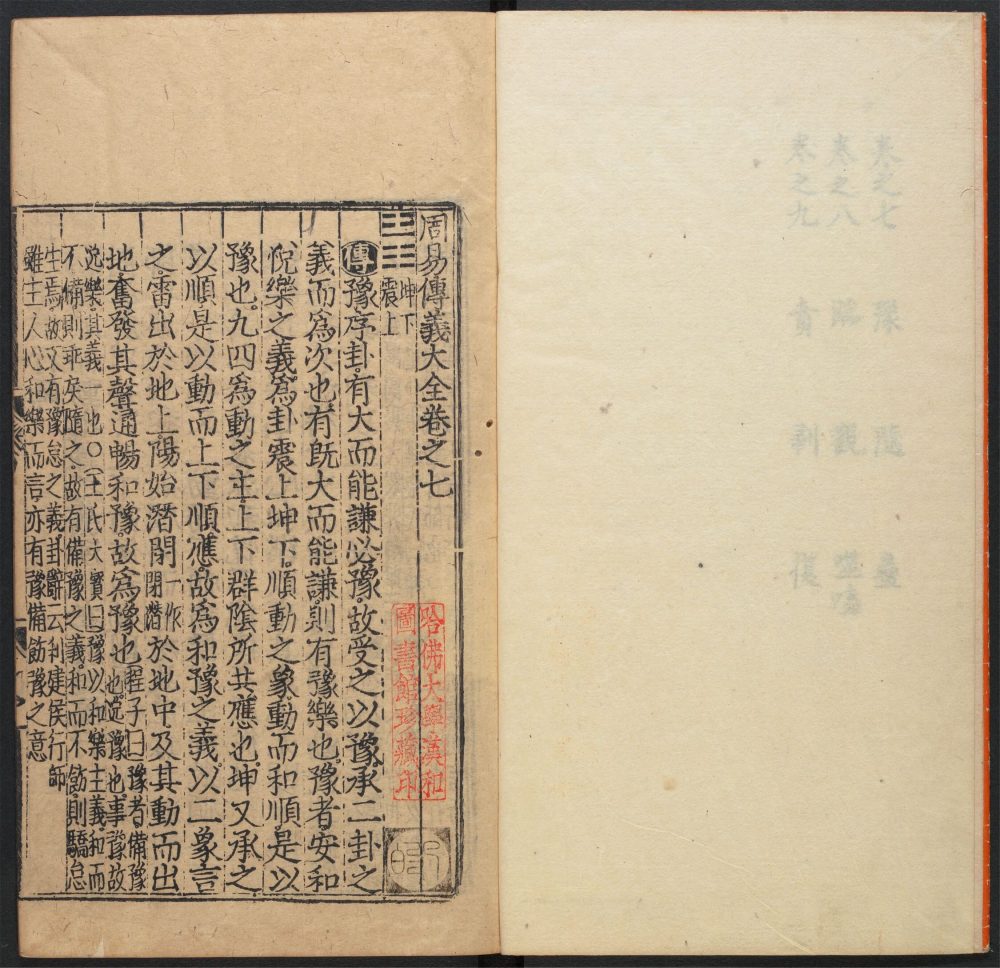 卷之七 豫 隨 蠱
卷之八 臨 觀 噬嗑
卷之九 賁 剝 復
周易傳義大全卷之七
哈佛大學漢和
圖書館珍藏印
坤下
震上
傳豫序卦有大而能謙必豫故受之以豫承二卦之
義而爲次也有既大而能謙則有豫樂也豫者安和
悅樂之義爲卦震上坤下順動之象動而和順是以
豫也九四爲動之主上下群陰所共應也坤又承之
以順是以動而上下順應故爲和豫之義以二象言
之雷出於地上陽始潛閉一作閉潛於地中及其動而出
地奮發其聲通暢和豫故爲豫也程子曰豫者備豫
也逸豫也事豫故
逸樂其義一也〇王氏大寶曰豫以和樂主義和而
不備則乖矣隨之故有備豫之義和而不飭則驕怠
生焉故又有豫怠之義卦辭云利建侯行師
雖主人心和樂而言亦有豫備飭豫之意